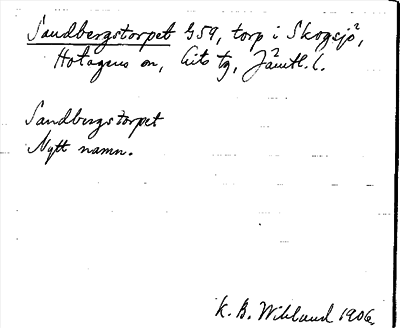 Sandbergstorpet G59, torp i Skogsjö²,
Hotagens sn, Lits tg, Jämtl. l.
Sandbergstorpet
Nytt namn.
K. B. Wiklund 1906.